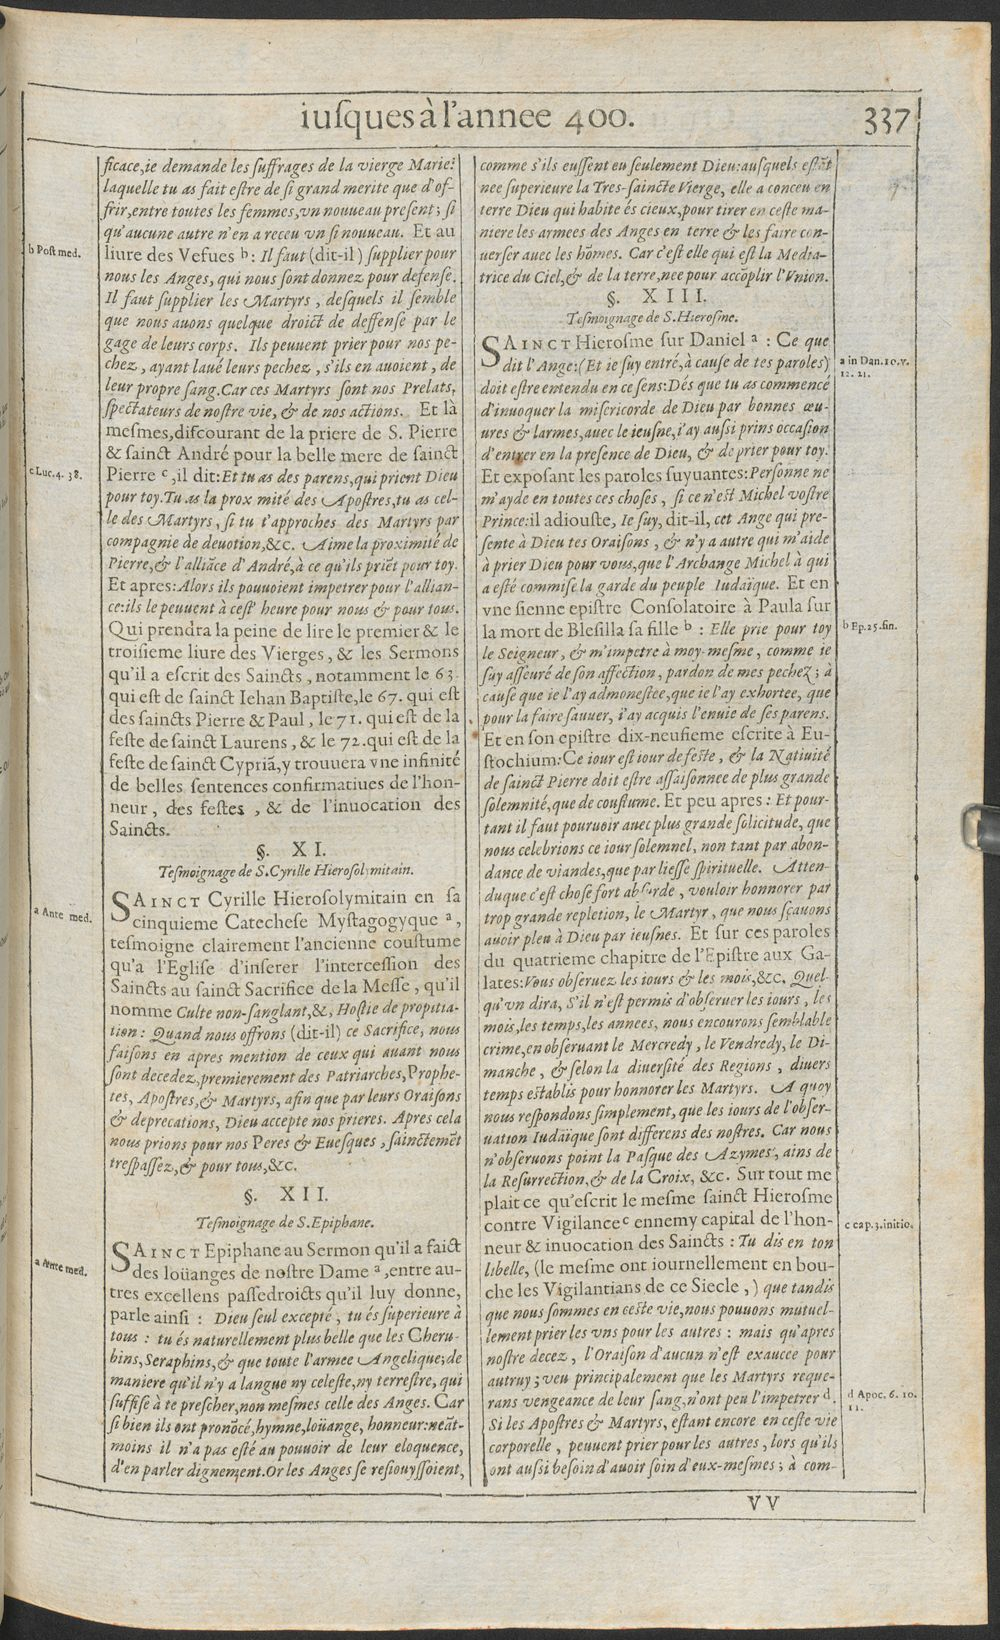 iuſques à l'annee 400.
337
ficace, ie demande les ſuffrages de la vierge Marie:
laquelle tu as fait eſtre de ſi grand merite que d'of-
frir, entre toutes les femmes, vn nouueau preſent; ſi
qu'aucune autre n'en a receu vn ſi nouueau. Et au
b Poſt med.
liure des Vefues b : Il faut (dit-il) ſupplier pour
nous les Anges, qui nous ſont donnez pour defenſe.
Il faut ſupplier les Martyrs, deſquels il ſemble
que nous auons quelque droict de deffenſe par le
gage de leurs corps. Ils peuuent prier pour nos pe-
chez, ayant laué leurs pechez, s'ils en auoient, de
leur propre ſang. Car ces Martyrs ſont nos Prelats,
ſpectateurs de noſtre vie, & de nos actions. Et là
meſmes, diſcourant de la priere de S. Pierre
& ſainct André pour la belle mere de ſainct
c Luc. 4. 38.
Pierre c, il dit: Et tu as des parens, qui prient Dieu
pour toy. Tu as la prox mité des Apoſtres, tu as cel-
le des Martyrs, ſi tu t'approches des Martyrs par
compagnie de deuotion, &c. Aime la proximité de
Pierre, & l'alliãce d'André, à ce qu'ils priẽt pour toy.
Et apres: Alors ils pouuoient impetrer pour l'allian-
ce: ils le peuuent à ceſt' heure pour nous & pour tous.
Qui prendra la peine de lire le premier & le
troiſieme liure des Vierges, & les Sermons
qu'il a eſcrit des Saincts, notamment le 63.
qui eſt de ſainct Iehan Baptiſte, le 67. qui eſt
des ſaincts Pierre & Paul, le 71. qui eſt de la
feſte de ſainct Laurens, & le 72. qui eſt de la
feſte de ſainct Cypriã, y trouuera vne infinité
de belles ſentences confirmatiues de l'hon-
neur, des feſtes, & de l'inuocation des
Saincts.
§. XI.
Teſmoignage de S. Cyrille Hieroſolymitain.
SAINCT Cyrille Hieroſolymitain en ſa
a Ante med.
cinquieme Catecheſe Myſtagogyque a,
teſmoigne clairement l'ancienne couſtume
qu'a l'Egliſe d'inſerer l'interceſſion des
Saincts au ſainct Sacrifice de la Meſſe, qu'il
nomme Culte non-ſanglant, &, Hoſtie de propitia-
tion: Quand nous offrons (dit-il) ce Sacrifice, nous
faiſons en apres mention de ceux qui auant nous
ſont decedez, premierement des Patriarches, Prophe-
tes, Apoſtres, & Martyrs, afin que par leurs Oraiſons
& deprecations, Dieu accepte nos prieres. Apres cela
nous prions pour nos Peres & Eueſques, ſainctemẽt
treſpaſſez, & pour tous, &c.
§. XII.
Teſmoignage de S. Epiphane.
SAINCT Epiphane au Sermon qu'il a faict
a Ante med.
des loüanges de noſtre Dame a, entre au-
tres excellens paſſedroicts qu'il luy donne,
parle ainſi : Dieu ſeul excepté, tu és ſuperieure à
tous : tu és naturellement plus belle que les Cheru-
bins, Seraphins, & que toute l'armee Angelique; de
maniere qu'il n'y a langue ny celeſte, ny terreſtre, qui
ſuffiſe à te preſcher, non meſmes celle des Anges. Car
ſi bien ils ont pronõcé, hymne, loüange, honneur: neãt-
moins il n'a pas eſté au pouuoir de leur eloquence,
d'en parler dignement. Or les Anges ſe reſiouyſſoient,
comme s'ils euſſent eu ſeulement Dieu: auſquels eſtãt
nee ſuperieure la Tres-ſaincte Vierge, elle a conceu en
terre Dieu qui habite és cieux, pour tirer en ceſte ma-
niere les armees des Anges en terre & les faire con-
uerſer auec les hõmes. Car c'eſt elle qui eſt la Media-
trice du Ciel, & de la terre, nee pour accõplir l'Vnion.
§. XIII.
Teſmoignage de S. Hieroſme.
SAINCT Hieroſme ſur Daniel a : Ce que
a in Dan. 10. v.
12. 21.
dit l'Ange: (Et ie ſuy entré, à cauſe de tes paroles)
doit eſtre entendu en ce ſens: Dés que tu as commencé
d'inuoquer la miſericorde de Dieu par bonnes œu-
ures & larmes, auec le ieuſne, i'ay auſſi prins occaſion
d'entrer en la preſence de Dieu, & de prier pour toy.
Et expoſant les paroles ſuyuantes: Perſonne ne
m'ayde en toutes ces choſes, ſi ce n'eſt Michel voſtre
Prince: il adiouſte, Ie ſuy, dit-il, cet Ange qui pre-
ſente à Dieu tes Oraiſons, & n'y a autre qui m'aide
à prier Dieu pour vous, que l'Archange Michel à qui
a eſté commiſe la garde du peuple Iudaïque. Et en
vne ſienne epiſtre Conſolatoire à Paula ſur
b Ep. 25. fin.
la mort de Bleſilla ſa fille b : Elle prie pour toy
le Seigneur, & m'impetre à moy-meſme, comme ie
ſuy aſſeuré de ſon affection, pardon de mes pechez; à
cauſe que ie l'ay admoneſtee, que ie l'ay exhortee, que
pour la faire ſauuer, i'ay acquis l'enuie de ſes parens.
Et en ſon epiſtre dix-neufieme eſcrite à Eu-
ſtochium: Ce iour eſt iour de feſte, & la Natiuité
de ſainct Pierre doit eſtre aſſaiſonnee de plus grande
ſolemnité, que de couſtume. Et peu apres : Et pour-
tant il faut pouruoir auec plus grande ſolicitude, que
nous celebrions ce iour ſolemnel, non tant par abon-
dance de viandes, que par lieſſe ſpirituelle. Atten-
duque c'eſt choſe fort abſurde, vouloir honnorer par
trop grande repletion, le Martyr, que nous ſçauons
auoir pleu à Dieu par ieuſnes. Et ſur ces paroles
du quatrieme chapitre de l'Epiſtre aux Ga-
lates: Vous obſeruez les iours & les mois, &c. Quel-
qu'vn dira, S'il n'eſt permis d'obſeruer les iours, les
mois, les temps, les annees, nous encourons ſemblable
crime, en obſeruant le Mercredy, le Vendredy, le Di-
manche, & ſelon la diuerſité des Regions, diuers
temps eſtablis pour honnorer les Martyrs. A quoy
nous reſpondons ſimplement, que les iours de l'obſer-
uation Iudaïque ſont differens des noſtres. Car nous
n'obſeruons point la Paſque des Azymes, ains de
la Reſurrection, & de la Croix, &c. Sur tout me
plait ce qu'eſcrit le meſme ſainct Hieroſme
c cap. 3. initio.
contre Vigilance c ennemy capital de l'hon-
neur & inuocation des Saincts : Tu dis en ton
libelle, (le meſme ont iournellement en bou-
che les Vigilantians de ce Siecle,) que tandis
que nous ſommes en ceſte vie, nous pouuons mutuel-
lement prier les vns pour les autres : mais qu'apres
noſtre decez, l'Oraiſon d'aucun n'eſt exaucee pour
autruy; veu principalement que les Martyrs reque-
d Apoc. 6. 10.
11.
rans vengeance de leur ſang, n'ont peu l'impetrer d.
Si les Apoſtres & Martyrs, eſtant encore en ceſte vie
corporelle, peuuent prier pour les autres, lors qu'ils
ont auſſi beſoin d'auoir ſoin d'eux-meſmes; à com-
VV